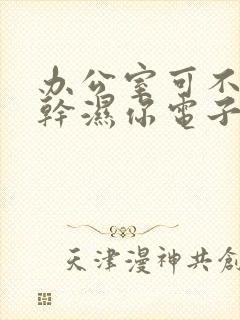 办公室可不
幹濕你電子
天津漫神共創